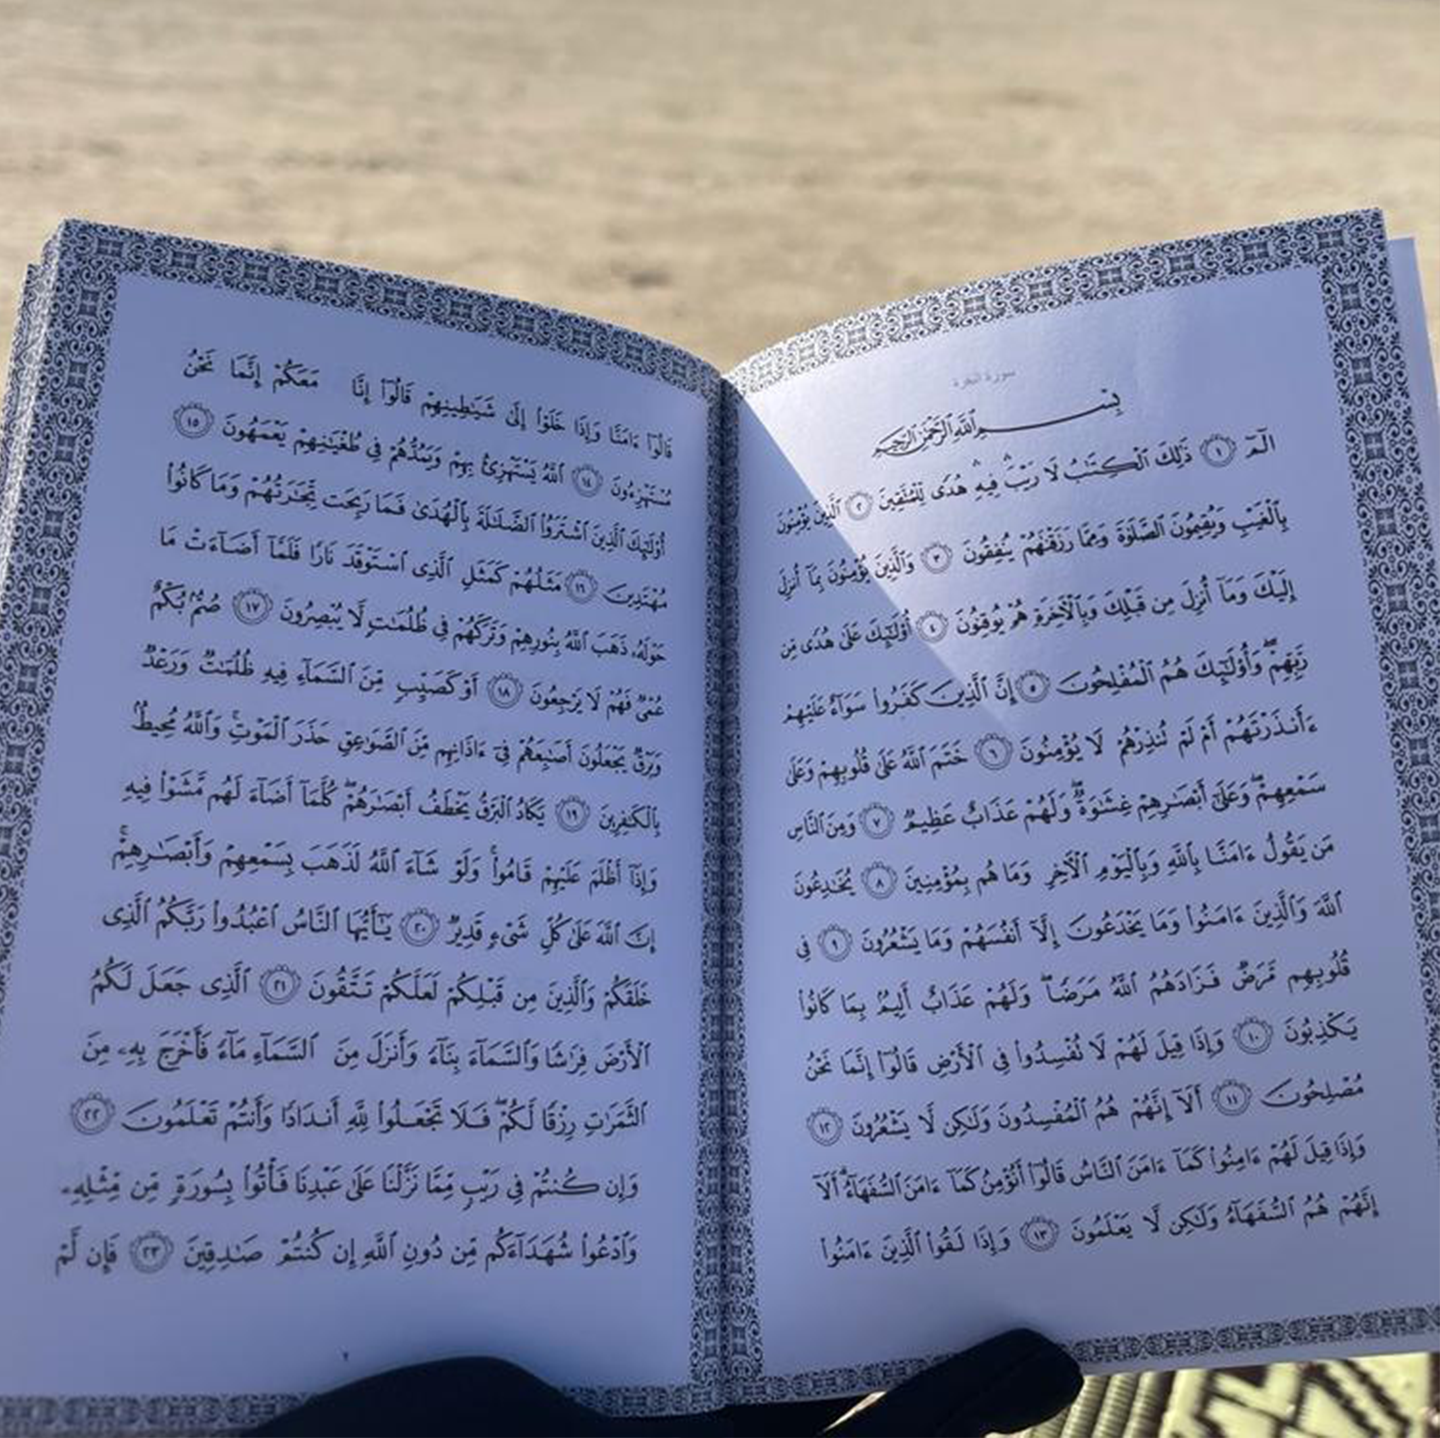 سورة البقرة
بِسْمِ ٱللَّهِ ٱلرَّحْمَٰنِ ٱلرَّحِيمِ
الٓمٓ ١ ذَٰلِكَ ٱلْكِتَٰبُ لَا رَيْبَ ۛ فِيهِ ۛ هُدًى لِّلْمُتَّقِينَ ٢ ٱلَّذِينَ يُؤْمِنُونَ
بِٱلْغَيْبِ وَيُقِيمُونَ ٱلصَّلَوٰةَ وَمِمَّا رَزَقْنَٰهُمْ يُنفِقُونَ ٣ وَٱلَّذِينَ يُؤْمِنُونَ بِمَآ أُنزِلَ
إِلَيْكَ وَمَآ أُنزِلَ مِن قَبْلِكَ وَبِٱلْءَاخِرَةِ هُمْ يُوقِنُونَ ٤ أُو۟لَٰٓئِكَ عَلَىٰ هُدًى مِّن
رَّبِّهِمْ ۖ وَأُو۟لَٰٓئِكَ هُمُ ٱلْمُفْلِحُونَ ٥ إِنَّ ٱلَّذِينَ كَفَرُوا۟ سَوَآءٌ عَلَيْهِمْ
ءَأَنذَرْتَهُمْ أَمْ لَمْ تُنذِرْهُمْ لَا يُؤْمِنُونَ ٦ خَتَمَ ٱللَّهُ عَلَىٰ قُلُوبِهِمْ وَعَلَىٰ
سَمْعِهِمْ ۖ وَعَلَىٰٓ أَبْصَٰرِهِمْ غِشَٰوَةٌ ۖ وَلَهُمْ عَذَابٌ عَظِيمٌ ٧ وَمِنَ ٱلنَّاسِ
مَن يَقُولُ ءَامَنَّا بِٱللَّهِ وَبِٱلْيَوْمِ ٱلْءَاخِرِ وَمَا هُم بِمُؤْمِنِينَ ٨ يُخَٰدِعُونَ
ٱللَّهَ وَٱلَّذِينَ ءَامَنُوا۟ وَمَا يَخْدَعُونَ إِلَّآ أَنفُسَهُمْ وَمَا يَشْعُرُونَ ٩ فِى
قُلُوبِهِم مَّرَضٌ فَزَادَهُمُ ٱللَّهُ مَرَضًا ۖ وَلَهُمْ عَذَابٌ أَلِيمٌۢ بِمَا كَانُوا۟
يَكْذِبُونَ ١٠ وَإِذَا قِيلَ لَهُمْ لَا تُفْسِدُوا۟ فِى ٱلْأَرْضِ قَالُوٓا۟ إِنَّمَا نَحْنُ
مُصْلِحُونَ ١١ أَلَآ إِنَّهُمْ هُمُ ٱلْمُفْسِدُونَ وَلَٰكِن لَّا يَشْعُرُونَ ١٢
وَإِذَا قِيلَ لَهُمْ ءَامِنُوا۟ كَمَآ ءَامَنَ ٱلنَّاسُ قَالُوٓا۟ أَنُؤْمِنُ كَمَآ ءَامَنَ ٱلسُّفَهَآءُ ۗ أَلَآ
إِنَّهُمْ هُمُ ٱلسُّفَهَآءُ وَلَٰكِن لَّا يَعْلَمُونَ ١٣ وَإِذَا لَقُوا۟ ٱلَّذِينَ ءَامَنُوا۟
قَالُوٓا۟ ءَامَنَّا وَإِذَا خَلَوْا۟ إِلَىٰ شَيَٰطِينِهِمْ قَالُوٓا۟ إِنَّا مَعَكُمْ إِنَّمَا نَحْنُ
مُسْتَهْزِءُونَ ١٤ ٱللَّهُ يَسْتَهْزِئُ بِهِمْ وَيَمُدُّهُمْ فِى طُغْيَٰنِهِمْ يَعْمَهُونَ ١٥
أُو۟لَٰٓئِكَ ٱلَّذِينَ ٱشْتَرَوُا۟ ٱلضَّلَٰلَةَ بِٱلْهُدَىٰ فَمَا رَبِحَت تِّجَٰرَتُهُمْ وَمَا كَانُوا۟
مُهْتَدِينَ ١٦ مَثَلُهُمْ كَمَثَلِ ٱلَّذِى ٱسْتَوْقَدَ نَارًا فَلَمَّآ أَضَآءَتْ مَا
حَوْلَهُۥ ذَهَبَ ٱللَّهُ بِنُورِهِمْ وَتَرَكَهُمْ فِى ظُلُمَٰتٍ لَّا يُبْصِرُونَ ١٧ صُمٌّۢ بُكْمٌ
عُمْىٌ فَهُمْ لَا يَرْجِعُونَ ١٨ أَوْ كَصَيِّبٍ مِّنَ ٱلسَّمَآءِ فِيهِ ظُلُمَٰتٌ وَرَعْدٌ
وَبَرْقٌ يَجْعَلُونَ أَصَٰبِعَهُمْ فِىٓ ءَاذَانِهِم مِّنَ ٱلصَّوَٰعِقِ حَذَرَ ٱلْمَوْتِ ۚ وَٱللَّهُ مُحِيطٌۢ
بِٱلْكَٰفِرِينَ ١٩ يَكَادُ ٱلْبَرْقُ يَخْطَفُ أَبْصَٰرَهُمْ ۖ كُلَّمَآ أَضَآءَ لَهُم مَّشَوْا۟ فِيهِ
وَإِذَآ أَظْلَمَ عَلَيْهِمْ قَامُوا۟ ۚ وَلَوْ شَآءَ ٱللَّهُ لَذَهَبَ بِسَمْعِهِمْ وَأَبْصَٰرِهِمْ ۚ
إِنَّ ٱللَّهَ عَلَىٰ كُلِّ شَىْءٍ قَدِيرٌ ٢٠ يَٰٓأَيُّهَا ٱلنَّاسُ ٱعْبُدُوا۟ رَبَّكُمُ ٱلَّذِى
خَلَقَكُمْ وَٱلَّذِينَ مِن قَبْلِكُمْ لَعَلَّكُمْ تَتَّقُونَ ٢١ ٱلَّذِى جَعَلَ لَكُمُ
ٱلْأَرْضَ فِرَٰشًا وَٱلسَّمَآءَ بِنَآءً وَأَنزَلَ مِنَ ٱلسَّمَآءِ مَآءً فَأَخْرَجَ بِهِۦ مِنَ
ٱلثَّمَرَٰتِ رِزْقًا لَّكُمْ ۖ فَلَا تَجْعَلُوا۟ لِلَّهِ أَندَادًا وَأَنتُمْ تَعْلَمُونَ ٢٢
وَإِن كُنتُمْ فِى رَيْبٍ مِّمَّا نَزَّلْنَا عَلَىٰ عَبْدِنَا فَأْتُوا۟ بِسُورَةٍ مِّن مِّثْلِهِۦ
وَٱدْعُوا۟ شُهَدَآءَكُم مِّن دُونِ ٱللَّهِ إِن كُنتُمْ صَٰدِقِينَ ٢٣ فَإِن لَّمْ
٧